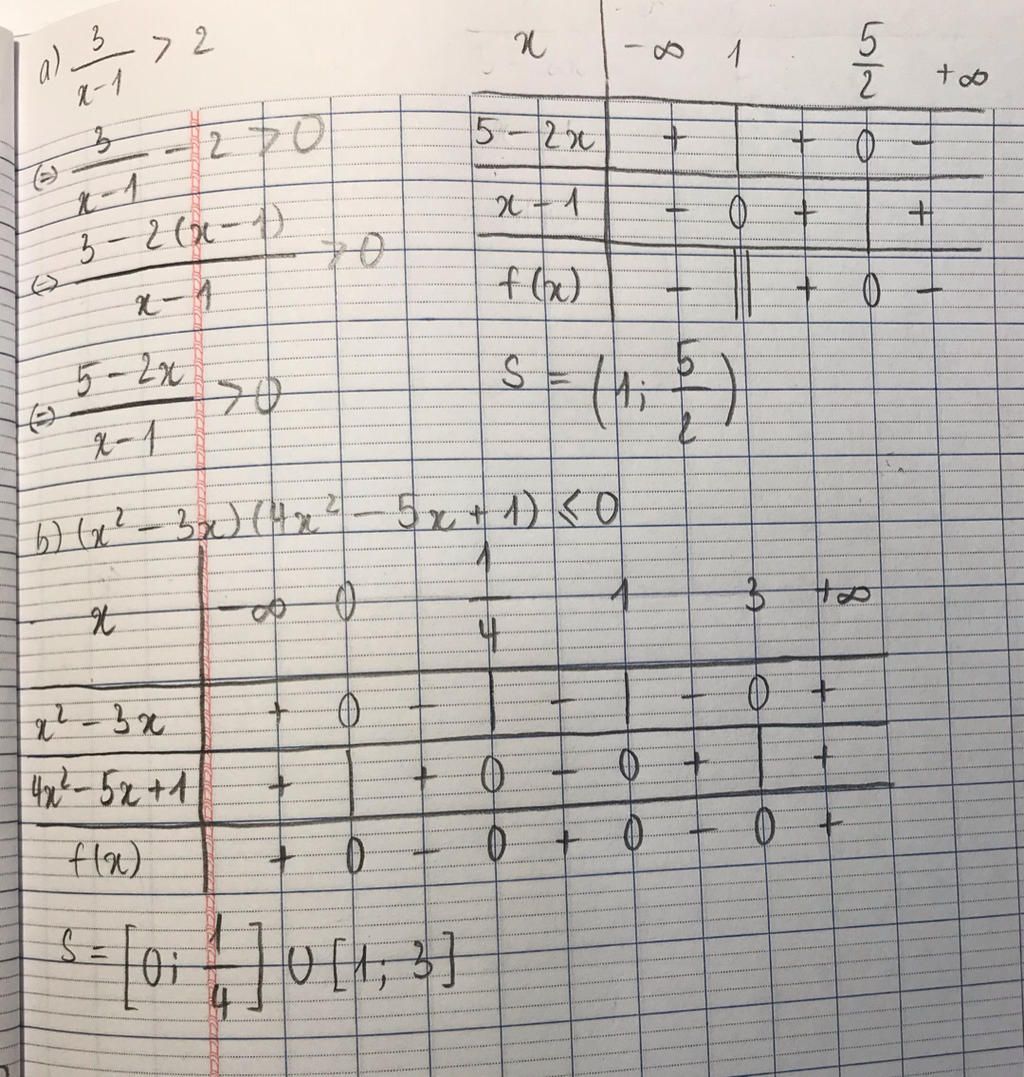 a) 3/(x-1) > 2
(=) 3/(x-1) - 2 > 0
(=) (3 - 2(x-1))/(x-1) > 0
(=) (5 - 2x)/(x-1) > 0
x | -∞ 1 5/2 +∞
5 - 2x | + | + 0 -
x - 1 | - 0 + | +
f(x) | - || + 0 -
S = (1; 5/2)
b) (x² - 3x)(4x² - 5x + 1) ≤ 0
x | -∞ 0 1/4 1 3 +∞
x² - 3x | + 0 - | - | - 0 +
4x² - 5x + 1 | + | + 0 - 0 + | +
f(x) | + 0 - 0 + 0 - 0 +
S = [0; 1/4] ∪ [1; 3]